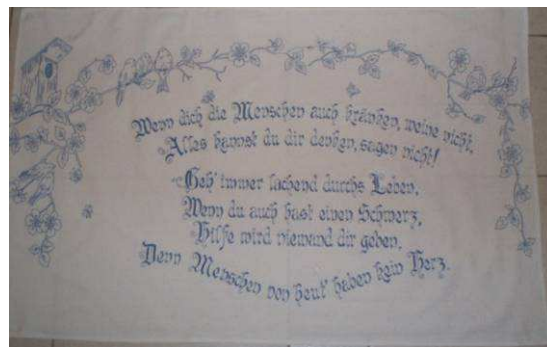 Wenn dich die Menschen auch kränken, weine nicht,
Alles kannst du dir denken, sagen nicht!
Geh' immer lachend durchs Leben,
Wenn du auch hast einen Schmerz,
Hilfe wird niemand dir geben,
Denn Menschen von heut' haben kein Herz.